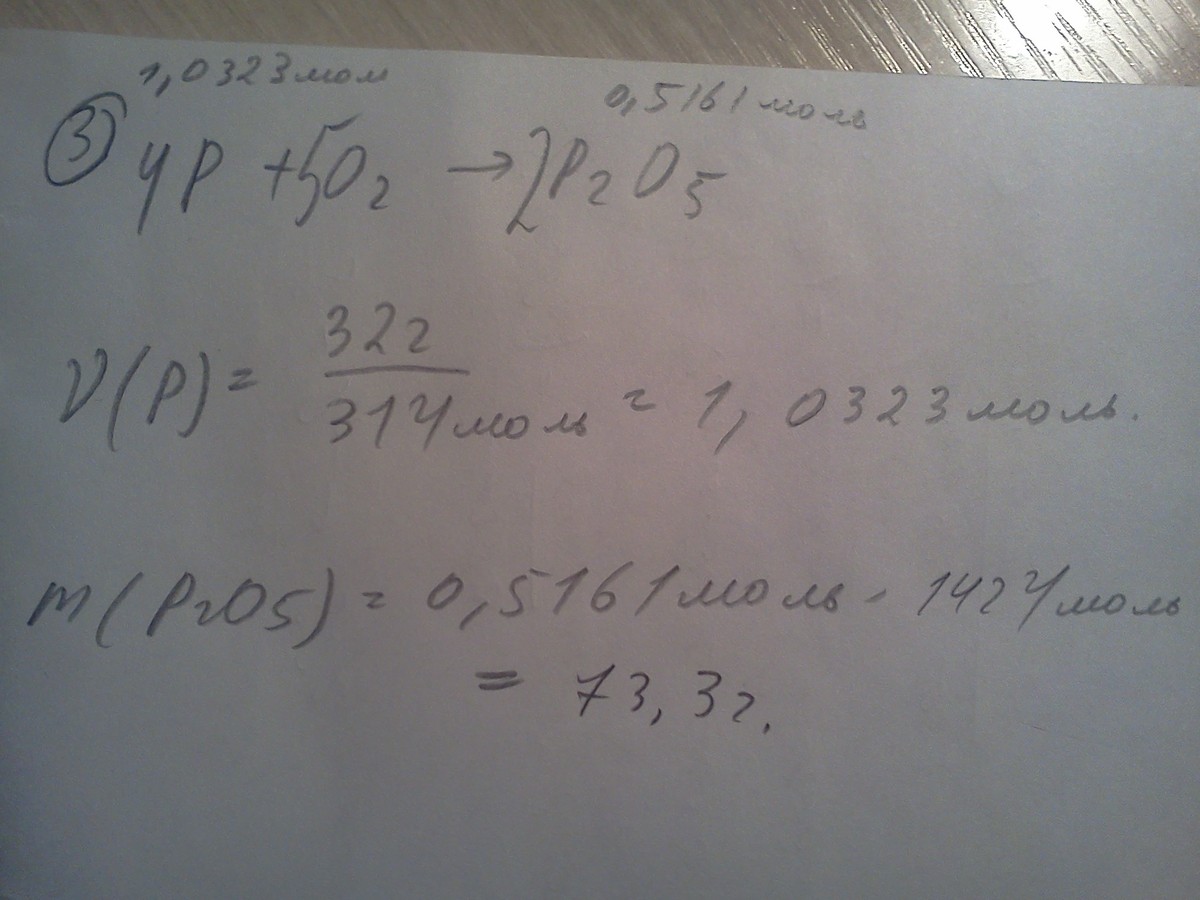 1,0323 мол
0,5161 моль
③ 4P + 5O₂ → 2P₂O₅
32г
ν(P) = ── = 1,0323 моль.
31г/моль
m(P₂O₅) = 0,5161 моль · 142г/моль
= 73,3г.